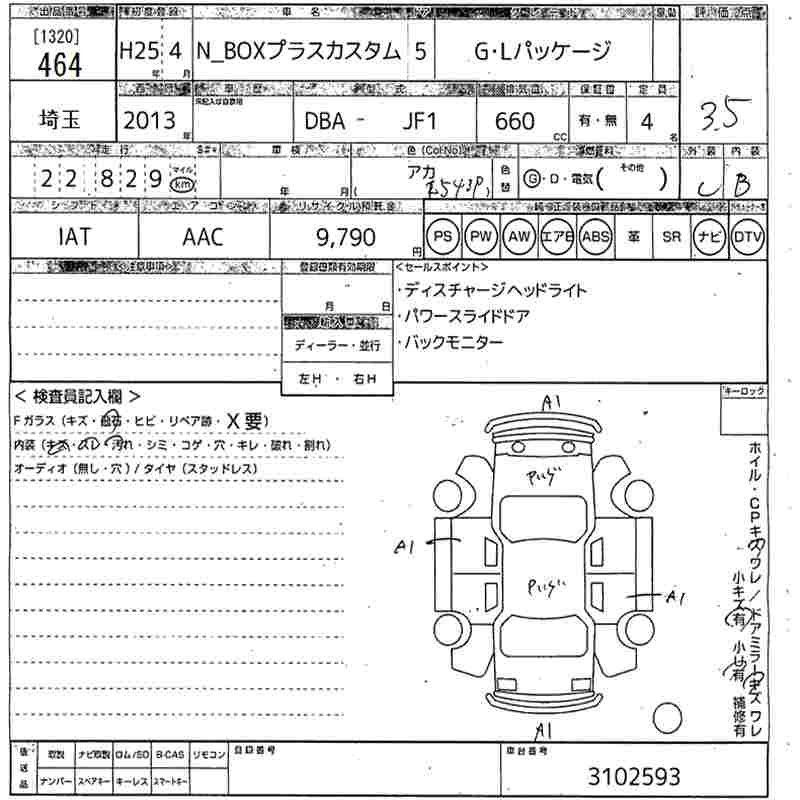 出品番号 初度登録 車名
[1320]
464
H25 4
年 月
N_BOXプラスカスタム 5 G・Lパッケージ
評価点
埼玉
2013
年
車歴
未記入は自家用
型式
DBA - JF1
排気量
660
CC
保証書
有・無
定員
4
名
3.5
走行
22829
マイル
km
車検
年 月
色(ColNo)
アカ
R543P
色替
燃料
G・D・電気( その他 )
外装 内装
C B
シフト エアコン リサイクル預託金
IAT AAC 9,790
円
PS PW AW エアB ABS 革 SR ナビ DTV
注意事項
登録書類有効期限
月 日
ディーラー・並行
左H ・ 右H
<セールスポイント>
・ディスチャージヘッドライト
・パワースライドドア
・バックモニター
<検査員記入欄>
Fガラス(キズ・飛石・ヒビ・リペア跡・X要)
内装(キズ・スレ・汚れ・シミ・コゲ・穴・キレ・破れ・割れ)
オーディオ(無し・穴)/タイヤ(スタッドレス)
キーロック
A1
A1
A1
A1
ホイル・CPキズワレ/ドアミラーキズワレ
小キズ有 小凹有 補修有
後送品
取説 ナビ取説 ロム/SD B-CAS リモコン
ナンバー スペアキー キーレス スマートキー
自印番号
車台番号
3102593